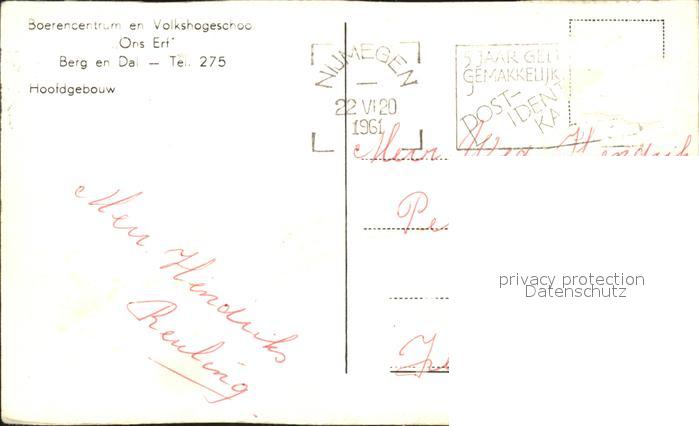 Boerencentrum en Volkshogeschool
„Ons Erf"
Berg en Dal — Tel. 275
Hoofdgebouw
NIJMEGEN
22 VI 20
1961
5 JAAR GELD
GEMAKKELIJK
POST-
IDENT
KA
Mevr. Wed Hendrik
Pe
Mevr. Hendriks
Reuling
privacy protection
Datenschutz